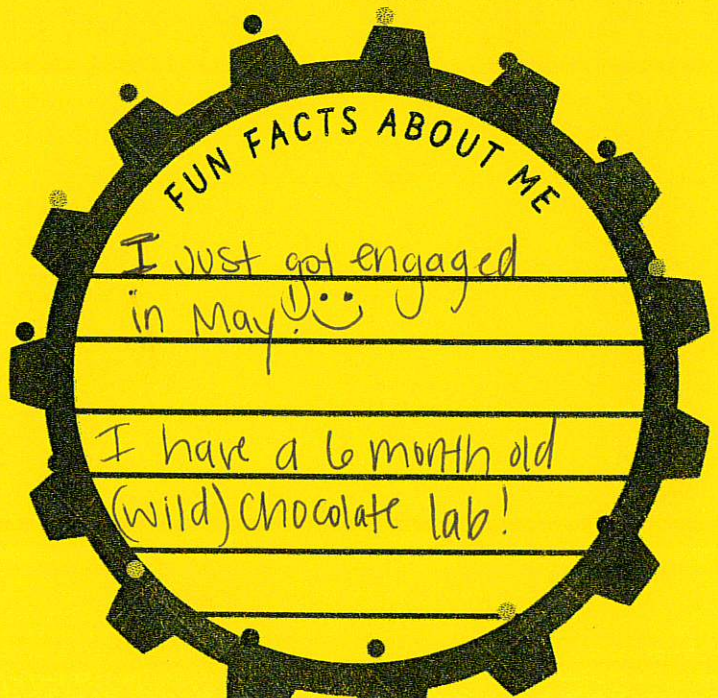 FUN FACTS ABOUT ME
I just got engaged
in May! :)
I have a 6 month old
(wild) chocolate lab!